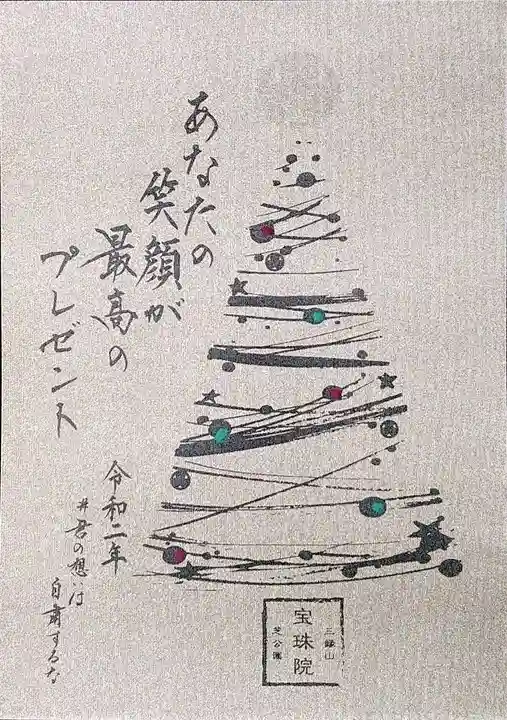 あなたの
笑顔が
最高の
プレゼント
令和二年
#吾の想いは
自粛するな
三縁山
宝珠院
芝公園